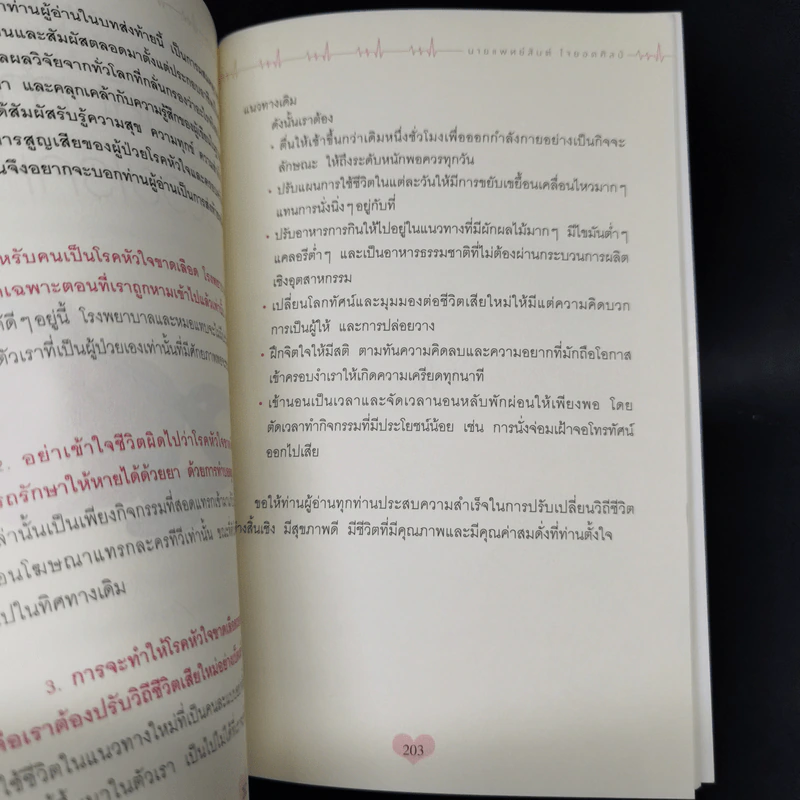 ท่านผู้อ่านในบทส่งท้ายนี้
และสัมผัสตลอดมาตั้งแต่
ผลวิจัยจากทั่วโลกที่กลั่นกรอง
และคลุกเคล้ากับความรู้สึกของ
สัมผัสรับรู้ความสุข ความทุกข์
การสูญเสียของผู้ป่วยโรคหัวใจ
จึงอยากจะบอกท่านผู้อ่านเป็นการ
คนเป็นโรคหัวใจขาดเลือด
เฉพาะตอนที่เราถูกหามเข้าไปแล้วเท่านั้น
ดีๆ อยู่นี้ โรงพยาบาลและหมอแทบจะ
ตัวเราที่เป็นผู้ป่วยเองเท่านั้นที่มีศักยภาพ
2. อย่าเข้าใจชีวิตผิดไปว่าโรคหัวใจ
รักษาให้หายได้ด้วยยา ด้วยการ
นั้นเป็นเพียงกิจกรรมที่สอดแทรกเข้ามา
โฆษณาแทรกละครทีวีเท่านั้น
ไปในทิศทางเดิม
3. การจะทำให้โรคหัวใจขาดเลือด
คือเราต้องปรับวิถีชีวิตเสียใหม่อย่าง
ใช้ชีวิตในแนวทางใหม่ที่เป็นคนละ
ในตัวเรา เป็นไปไม่ได้ที่
นายแพทย์สันต์ ใจยอดศิลป์
แนวทางเดิม
ดังนั้นเราต้อง
• ตื่นให้เช้าขึ้นกว่าเดิมหนึ่งชั่วโมงเพื่อออกกำลังกายอย่างเป็นกิจจะ
ลักษณะ ให้ถึงระดับหนักพอควรทุกวัน
• ปรับแผนการใช้ชีวิตในแต่ละวันให้มีการขยับเขยื้อนเคลื่อนไหวมากๆ
แทนการนั่งนิ่งๆ อยู่กับที่
• ปรับอาหารการกินให้ไปอยู่ในแนวทางที่มีผักผลไม้มากๆ มีไขมันต่ำๆ
แคลอรีต่ำๆ และเป็นอาหารธรรมชาติที่ไม่ต้องผ่านกระบวนการผลิต
เชิงอุตสาหกรรม
• เปลี่ยนโลกทัศน์และมุมมองต่อชีวิตเสียใหม่ให้มีแต่ความคิดบวก
การเป็นผู้ให้ และการปล่อยวาง
• ฝึกจิตใจให้มีสติ ตามทันความคิดลบและความอยากที่มักถือโอกาส
เข้าครอบงำเราให้เกิดความเครียดทุกนาที
• เข้านอนเป็นเวลาและจัดเวลานอนหลับพักผ่อนให้เพียงพอ โดย
ตัดเวลาทำกิจกรรมที่มีประโยชน์น้อย เช่น การนั่งจ่อมเฝ้าจอโทรทัศน์
ออกไปเสีย
ขอให้ท่านผู้อ่านทุกท่านประสบความสำเร็จในการปรับเปลี่ยนวิถีชีวิต
อย่างสิ้นเชิง มีสุขภาพดี มีชีวิตที่มีคุณภาพและมีคุณค่าสมดั่งที่ท่านตั้งใจ
203